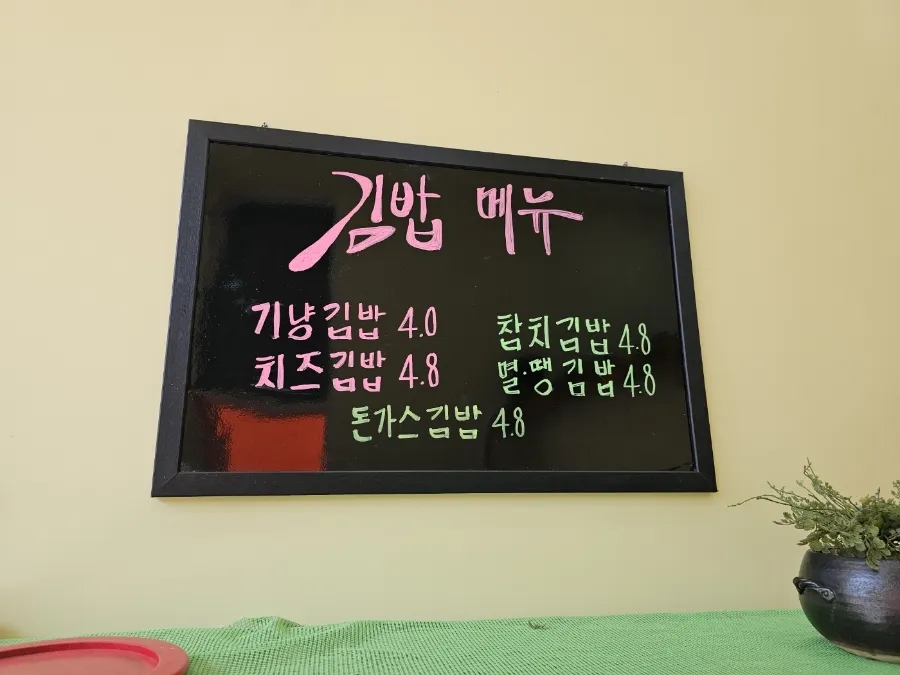 김밥 메뉴
기냥김밥 4.0
치즈김밥 4.8
참치김밥 4.8
멸.땡김밥 4.8
돈가스김밥 4.8